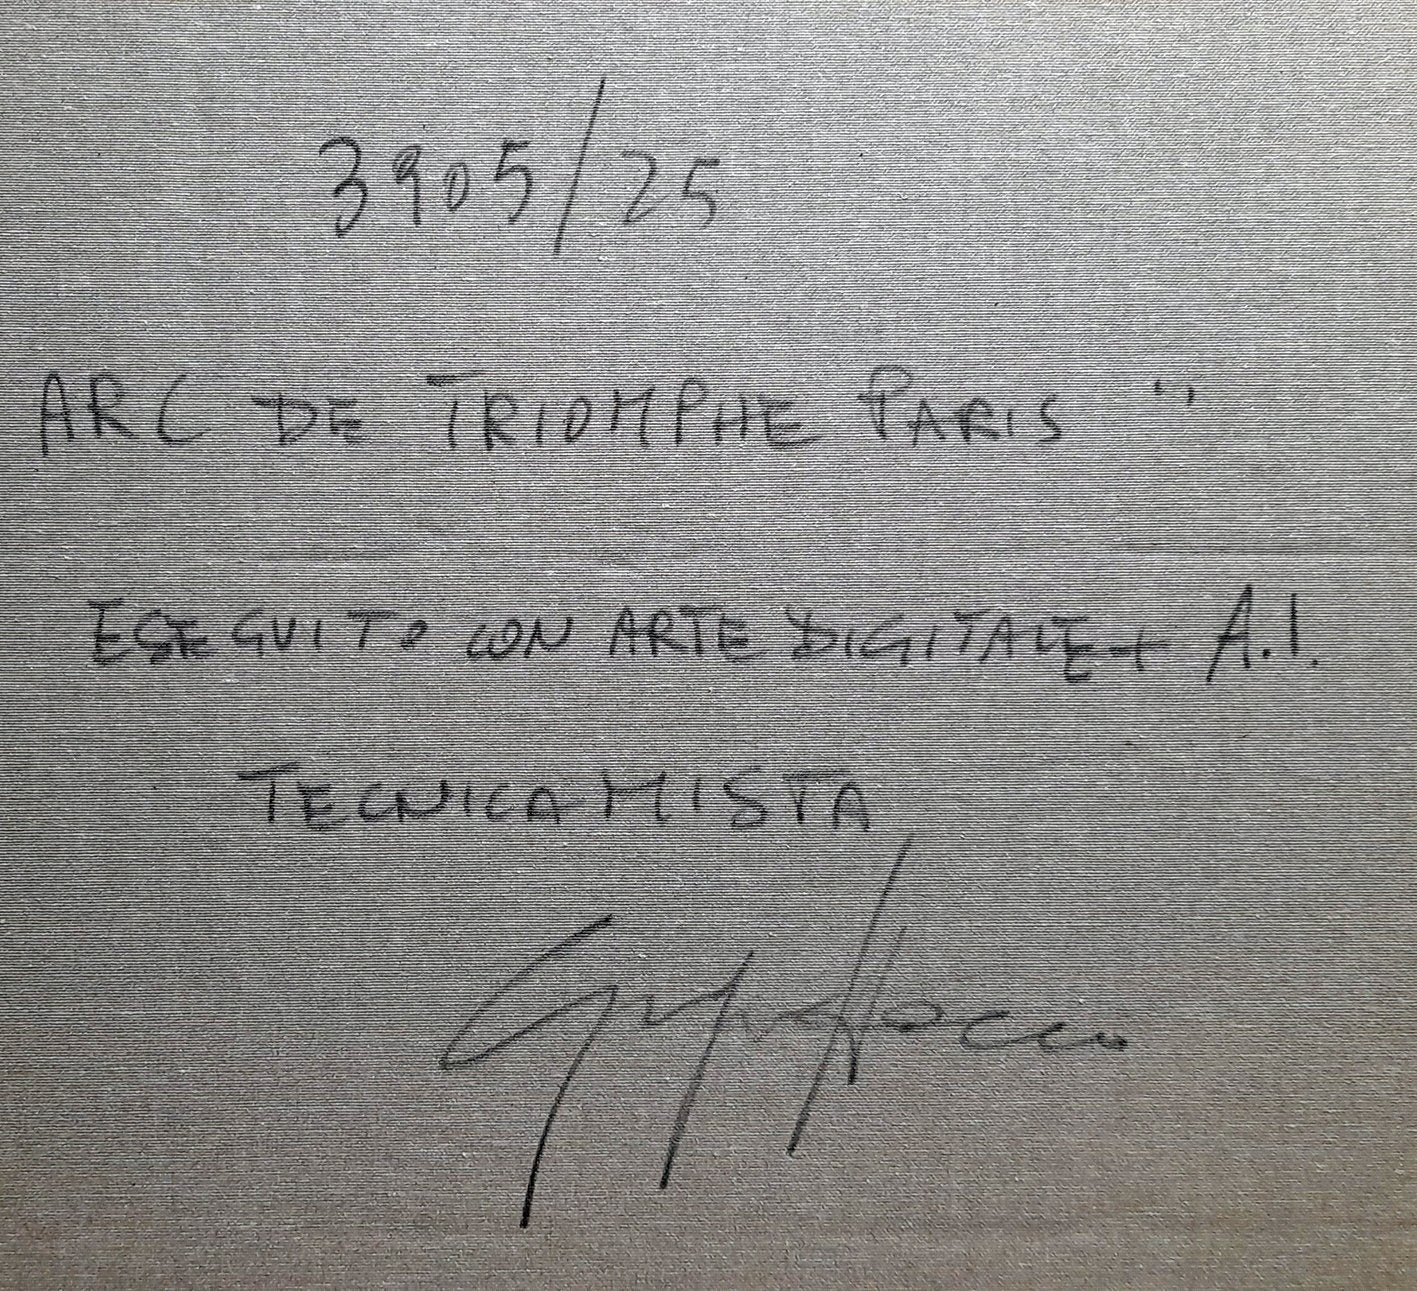 3905/25
ARC DE TRIOMPHE PARIS "
ESEGUITO CON ARTE DIGITALE + A.I.
TECNICA MISTA